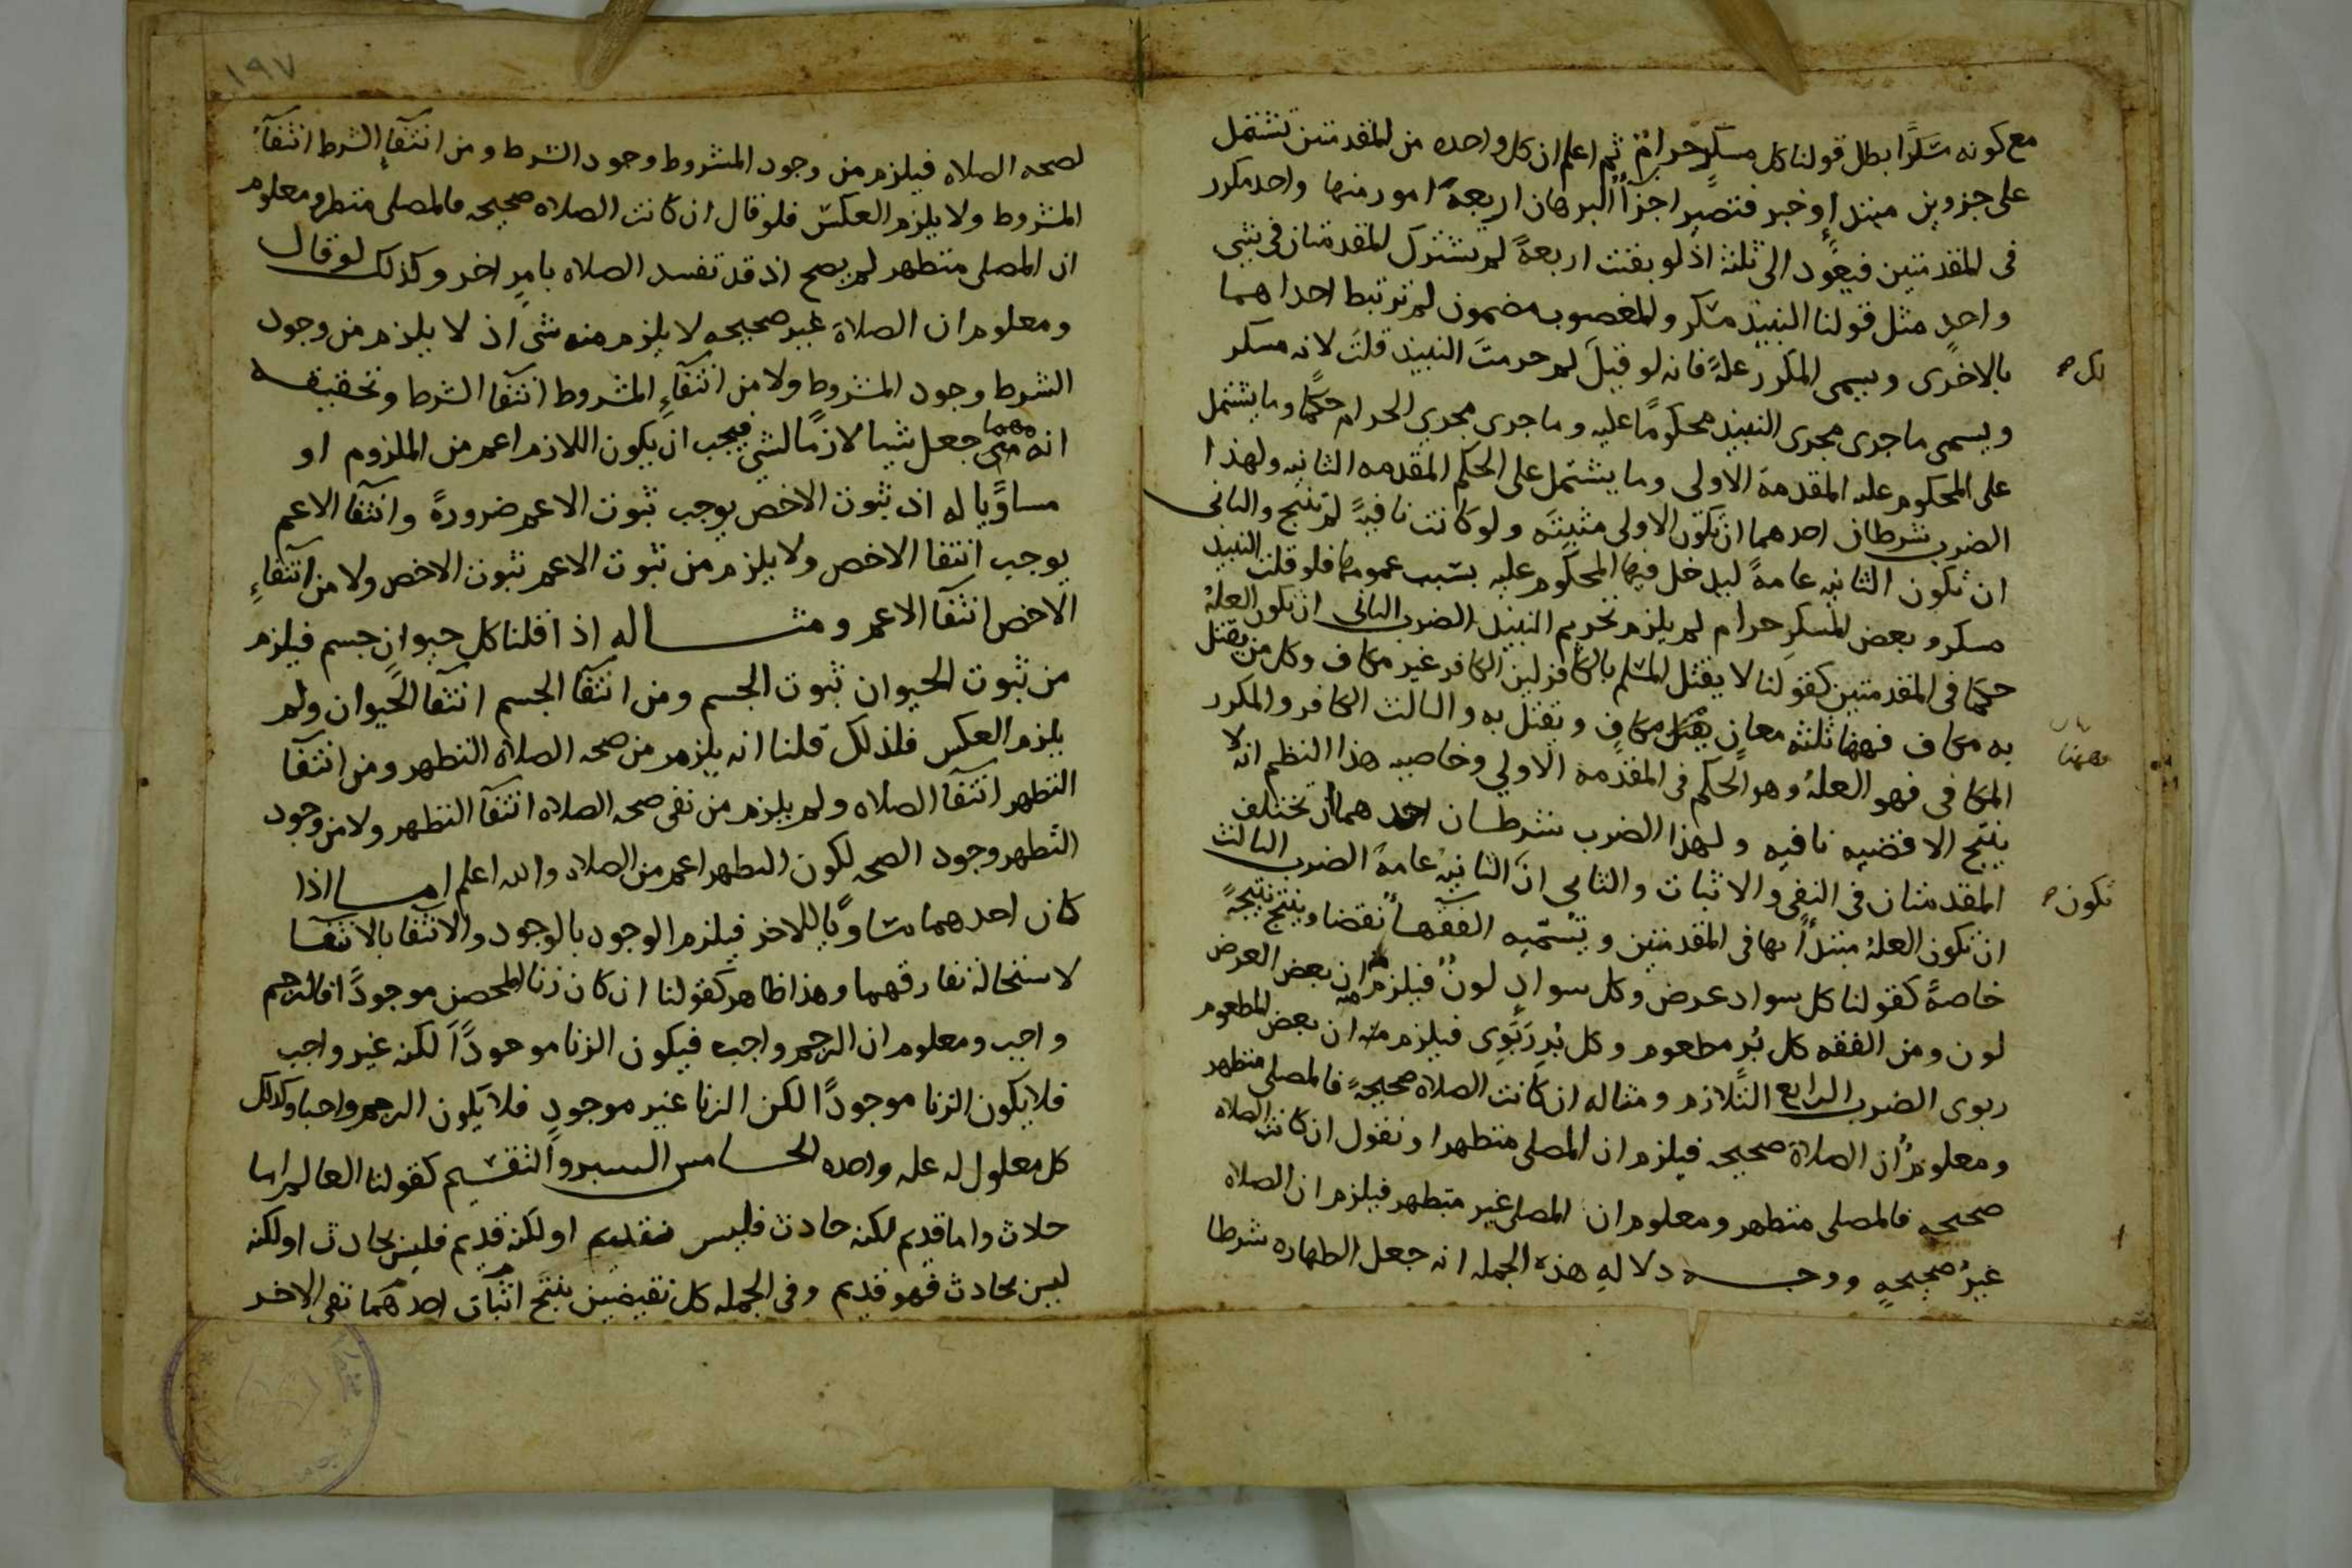 مع كونه مسكرًا بطل قولنا كل مسكرٍ حرامٌ ثم اعلم ان كل واحده من المقدمتين تشتمل
على جزوين مبتدإٍ وخبر فتصير اجزآأ البرهان اربعةَ امور منها واحد مكرر
فى المقدمتين فيعود الى ثلثة اذ لو بقيت اربعةً لم تشترك المقدمتان فى شى
واحدٍ مثل قولنا النبيذ مسكر والمغصوب مضمون لم ترتبط احداهما
بالاخرى ويسمى المكرر علةً فانه لو قيلَ لم حرمتَ النبيذ قلتَ لانه مسكر
لك ص
ويسمى ما جرى مجرى النبيذ محكومًا عليه وما جرى مجرى الحرام حكمًا وما يشتمل
على المحكوم عليه المقدمة الاولى وما يشتمل على الحكم المقدمه الثانيه ولهذا
الضرب شرطان احدهما ان تكون الاولى مثبتَه ولو كانت نافيةً لم تنتج والثانى
ان تكون الثانيه عامةً ليدخل فيها المحكوم عليه بسبب عمومها فلو قلت النبيذ
مسكر وبعض المسكرِ حرام لم يلزم تحريم النبيذ الضرب الثانى ان تكون العلةُ
حكمًا فى المقدمتين كقولنا لا يقتل المسلم بالكافر لين الكافر غير مكاف وكل من يقتل
به مكاف فههنا ثلثه معانٍ مكافٍ ويقتل به والثالث الكافر والمكرر
فههنا
المكافى فهو العلةُ وهو الحكم فى المقدمة الاولى وخاصيه هذا النظم انه لا
ينتج الا قضيه نافيه ولهذا الضرب شرطان احدهما ان تختلف
المقدمتان فى النفى والاثبات والثانى انَّ الثانيةَ عامةً الضرب الثالث
تكون ص
ان تكون العلةُ مبتدأً بها فى المقدمتين وتسمّيه الفقهآ نقضا وينتج نتيجةً
خاصةً كقولنا كل سواد عرض وكل سوادٍ لونٌ فيلزم منه ان بعض العرض
لون ومن الفقه كل بُرٍ مطعوم وكل بُرٍ رِبَوِى فيلزم منه ان بعض المطعوم
ربوى الضرب الرابع التلازم ومثاله ان كانت الصلاة صحيحةً فالمصلى متطهر
ومعلومٌ ان الصلاة صحيحه فيلزم ان المصلى متطهرا ونقول ان كانت الصلاه
صحيحه فالمصلى متطهر ومعلوم ان المصلى غير متطهر فيلزم ان الصلاه
غيرُ صحيحهٍ ووجـــه دلالهِ هذه الجمله انه جعل الطهاره شرطا
١٩٧
لصحه الصلاه فيلزم من وجود المشروط وجود الشرط ومن انتفآءِ الشرط انتفآءُ
المشروط ولا يلزم العكس فلو قال ان كانت الصلاه صحيحه فالمصلى متطهر ومعلوم
ان المصلى متطهر لم يصح اذ قد تفسد الصلاه بامرٍ اخر وكذلك لو قال
ومعلوم ان الصلاة غير صحيحه لا يلزم منه شى اذ لا يلزم من وجود
الشرط وجود المشروط ولا من انتفآءِ المشروط انتفا الشرط وتحقيقه
انه مهما جعل شيا لازمًا لشى فيجب ان يكون اللازم اعم من الملزوم او
مساويًا له اذ ثبوت الاخص يوجب ثبوت الاعم ضرورةً وانتفآ الاعم
يوجب انتفا الاخص ولا يلزم من ثبوت الاعم ثبوت الاخص ولا من انتفآءِ
الاخص انتفآ الاعم ومثـــاله اذا قلنا كل حيوانٍ جسم فيلزم
من ثبوت الحيوان ثبوت الجسم ومن انتفآ الجسم انتفآ الحيوان ولم
يلزم العكس فلذلك قلنا انه يلزم من صحه الصلاة التطهر ومن انتفآ
التطهر انتفآ الصلاه ولم يلزم من نفى صحه الصلاه انتفآ التطهر ولا من وجود
التطهر وجود الصحه لكون التطهر اعم من الصلاه والله اعلم امـــا اذا
كان احدهما مساويًا للاخر فيلزم الوجود بالوجود والانتفا بالانتفآ
لاستحالة تفارقهما وهذا ظاهر كقولنا ان كان زنا المحصن موجودًا فالرجم
واجب ومعلوم ان الرجم واجب فيكون الزنا موجودًا لكنه غير واجب
فلا يكون الزنا موجودًا لكن الزنا غير موجودٍ فلا يكون الرجم واجبا وكذلك
كل معلول له عله واحده الخـامس السبر والتقسيم كقولنا العالم اما
حادث واما قديم لكنه حادث فليس بقديم او لكنه قديم فليس بحادث او لكنه
ليس بحادث فهو قديم وفى الجمله كل نقيضين ينتج اثبات احدهما نفى الاخر